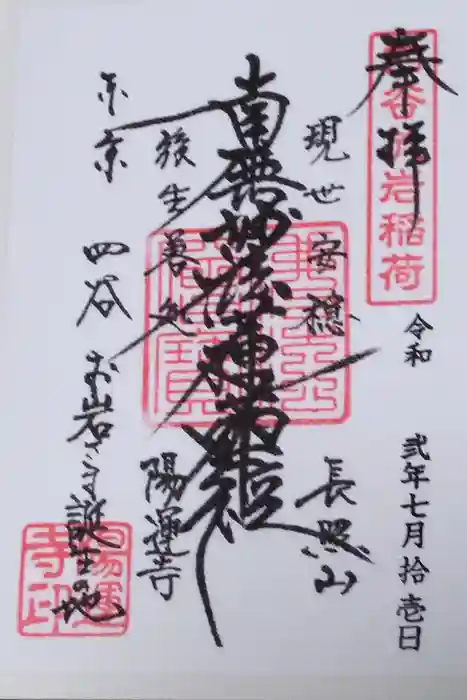 奉拝
於岩稲荷
令和
弐年七月拾壱日
現世安穏
長照山
南無妙法蓮華経
後生善処
陽運寺
東京
四谷
お岩さま誕生の地
陽運寺印